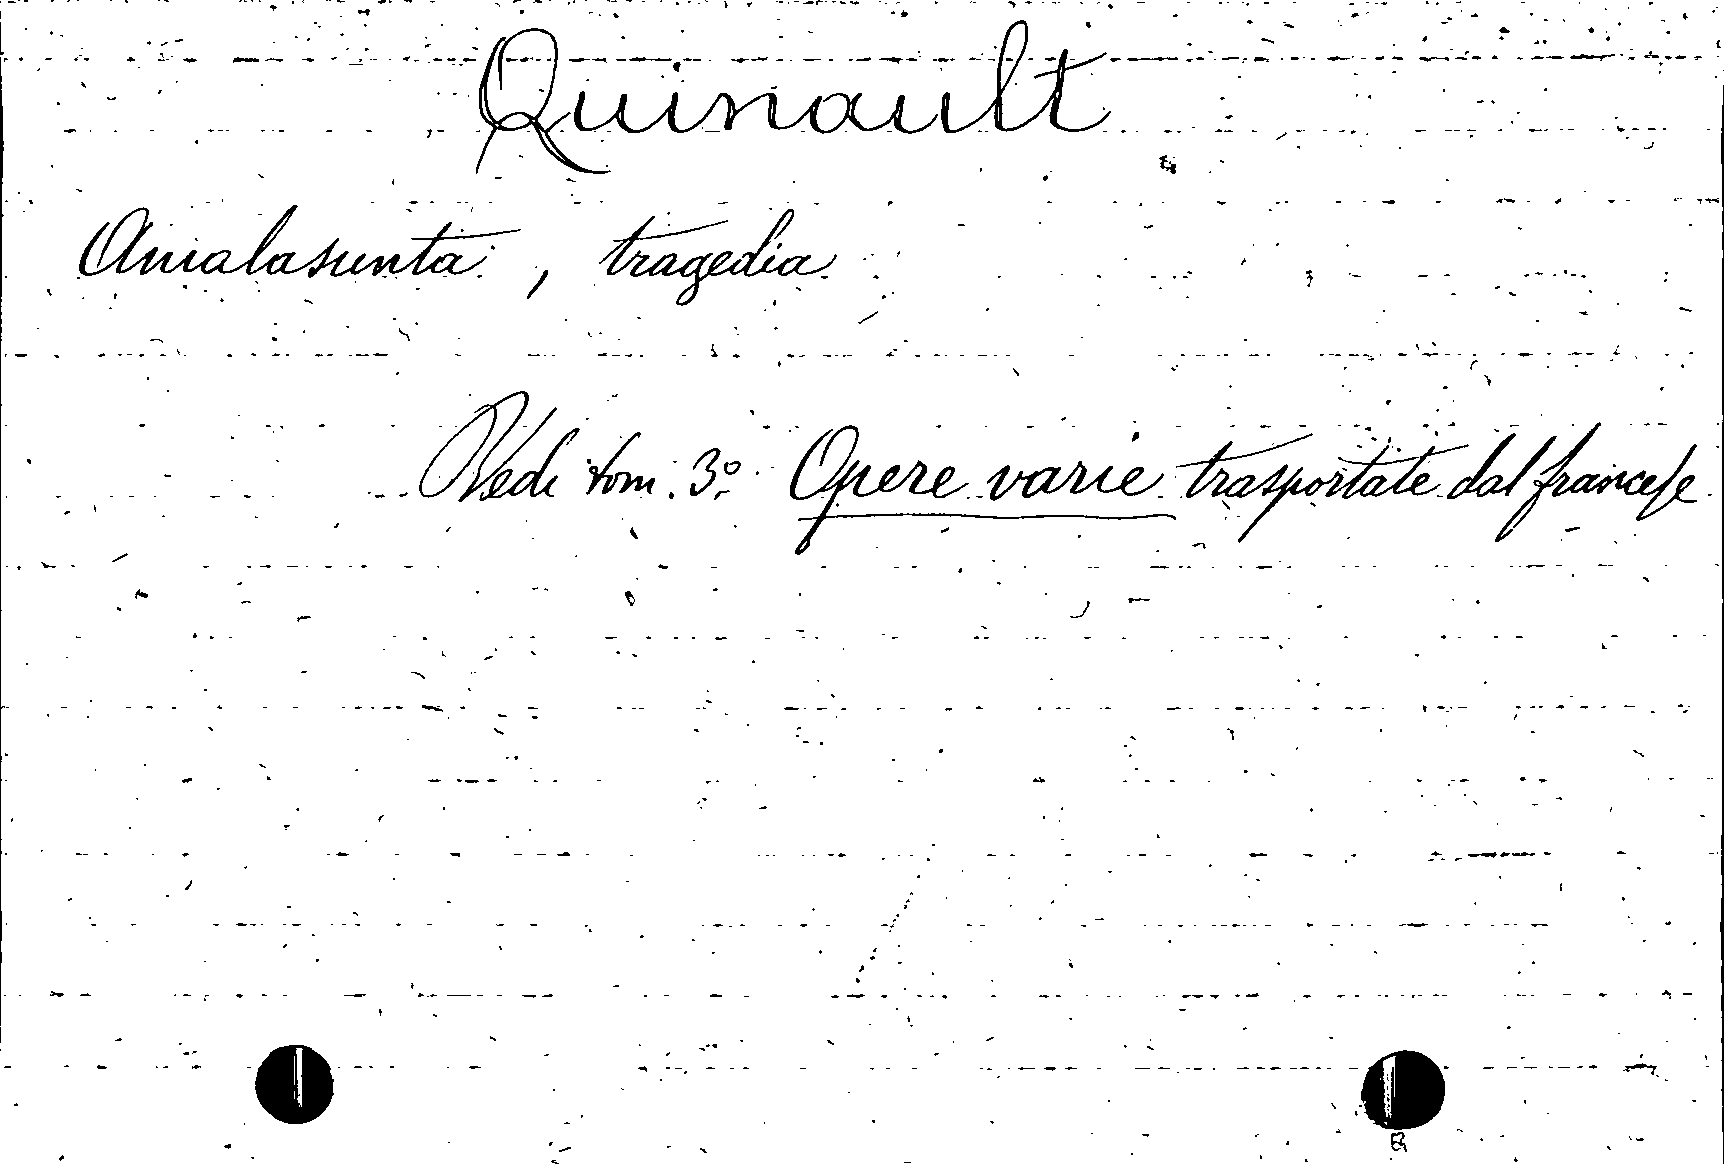 Quinault
Amalasunta, tragedia
Vedi tom. 3º Opere varie trasportate dal francese